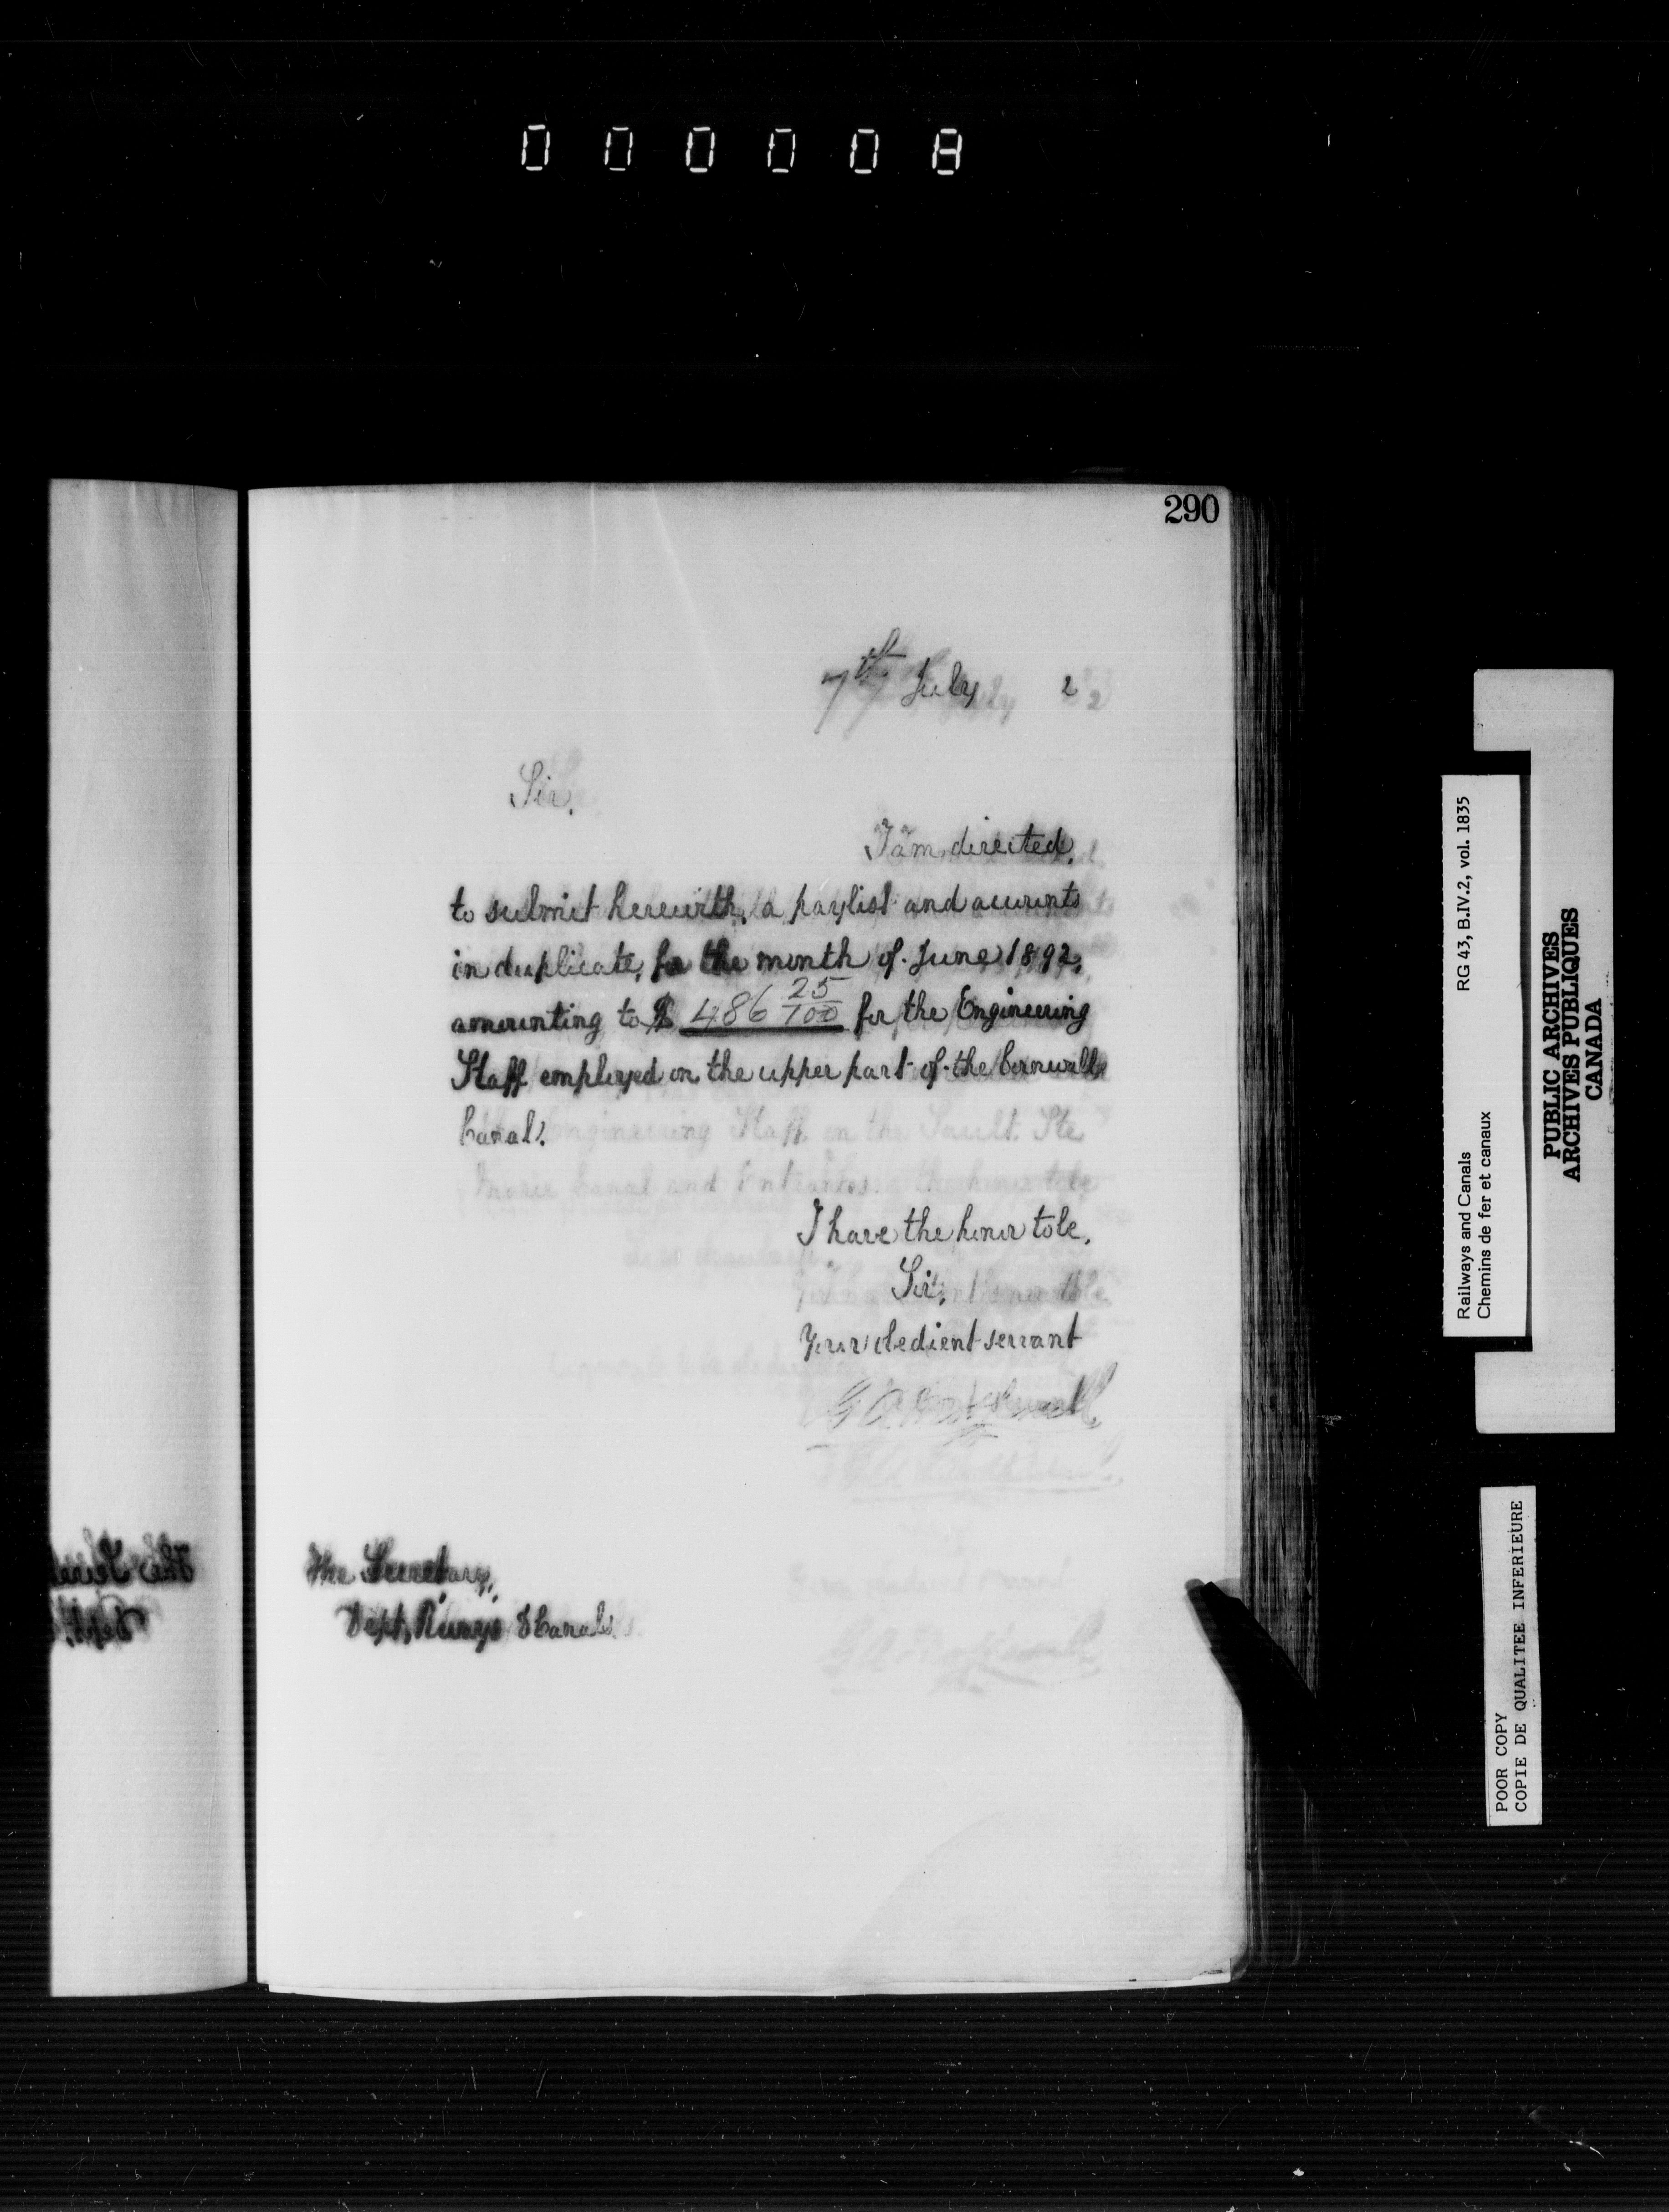 000008
290
7th July 2
Sir,
I am directed,
to submit herewith, a paylist and accounts
in duplicate, for the month of June 1892,
amounting to $ 486 25/100 for the Engineering
Staff employed on the upper part of the Cornwall
Canal.
I have the honor to be,
Sir,
Your obedient servant
The Secretary,
Dept, Rways & Canals.
Railways and Canals RG 43, B.IV.2, vol. 1835
Chemins de fer et canaux
PUBLIC ARCHIVES
ARCHIVES PUBLIQUES
CANADA
POOR COPY
COPIE DE QUALITEE INFERIEURE